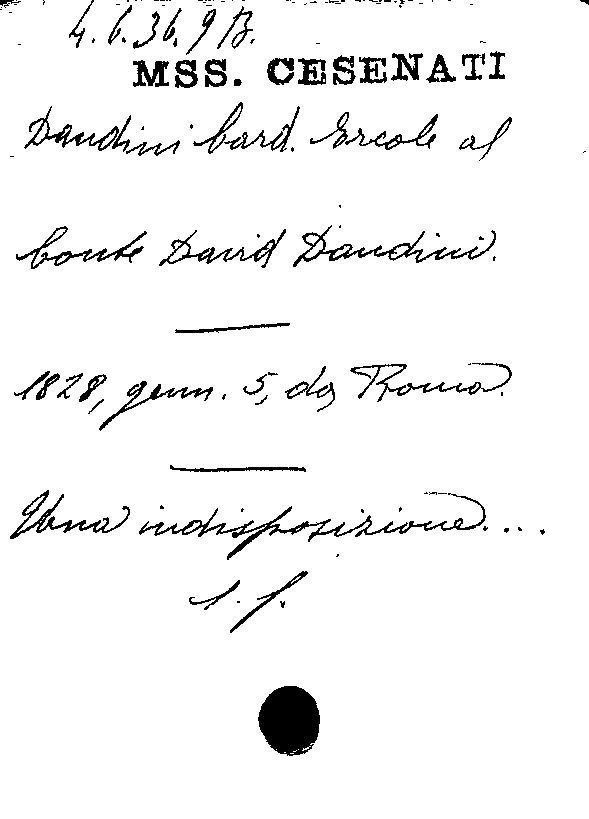 4.6.36.9 B.
MSS. CESENATI
Dandini Card. Ercole al
Conte David Dandini.
1828, genn. 5, da Roma.
Una indisposizione....
s. f.